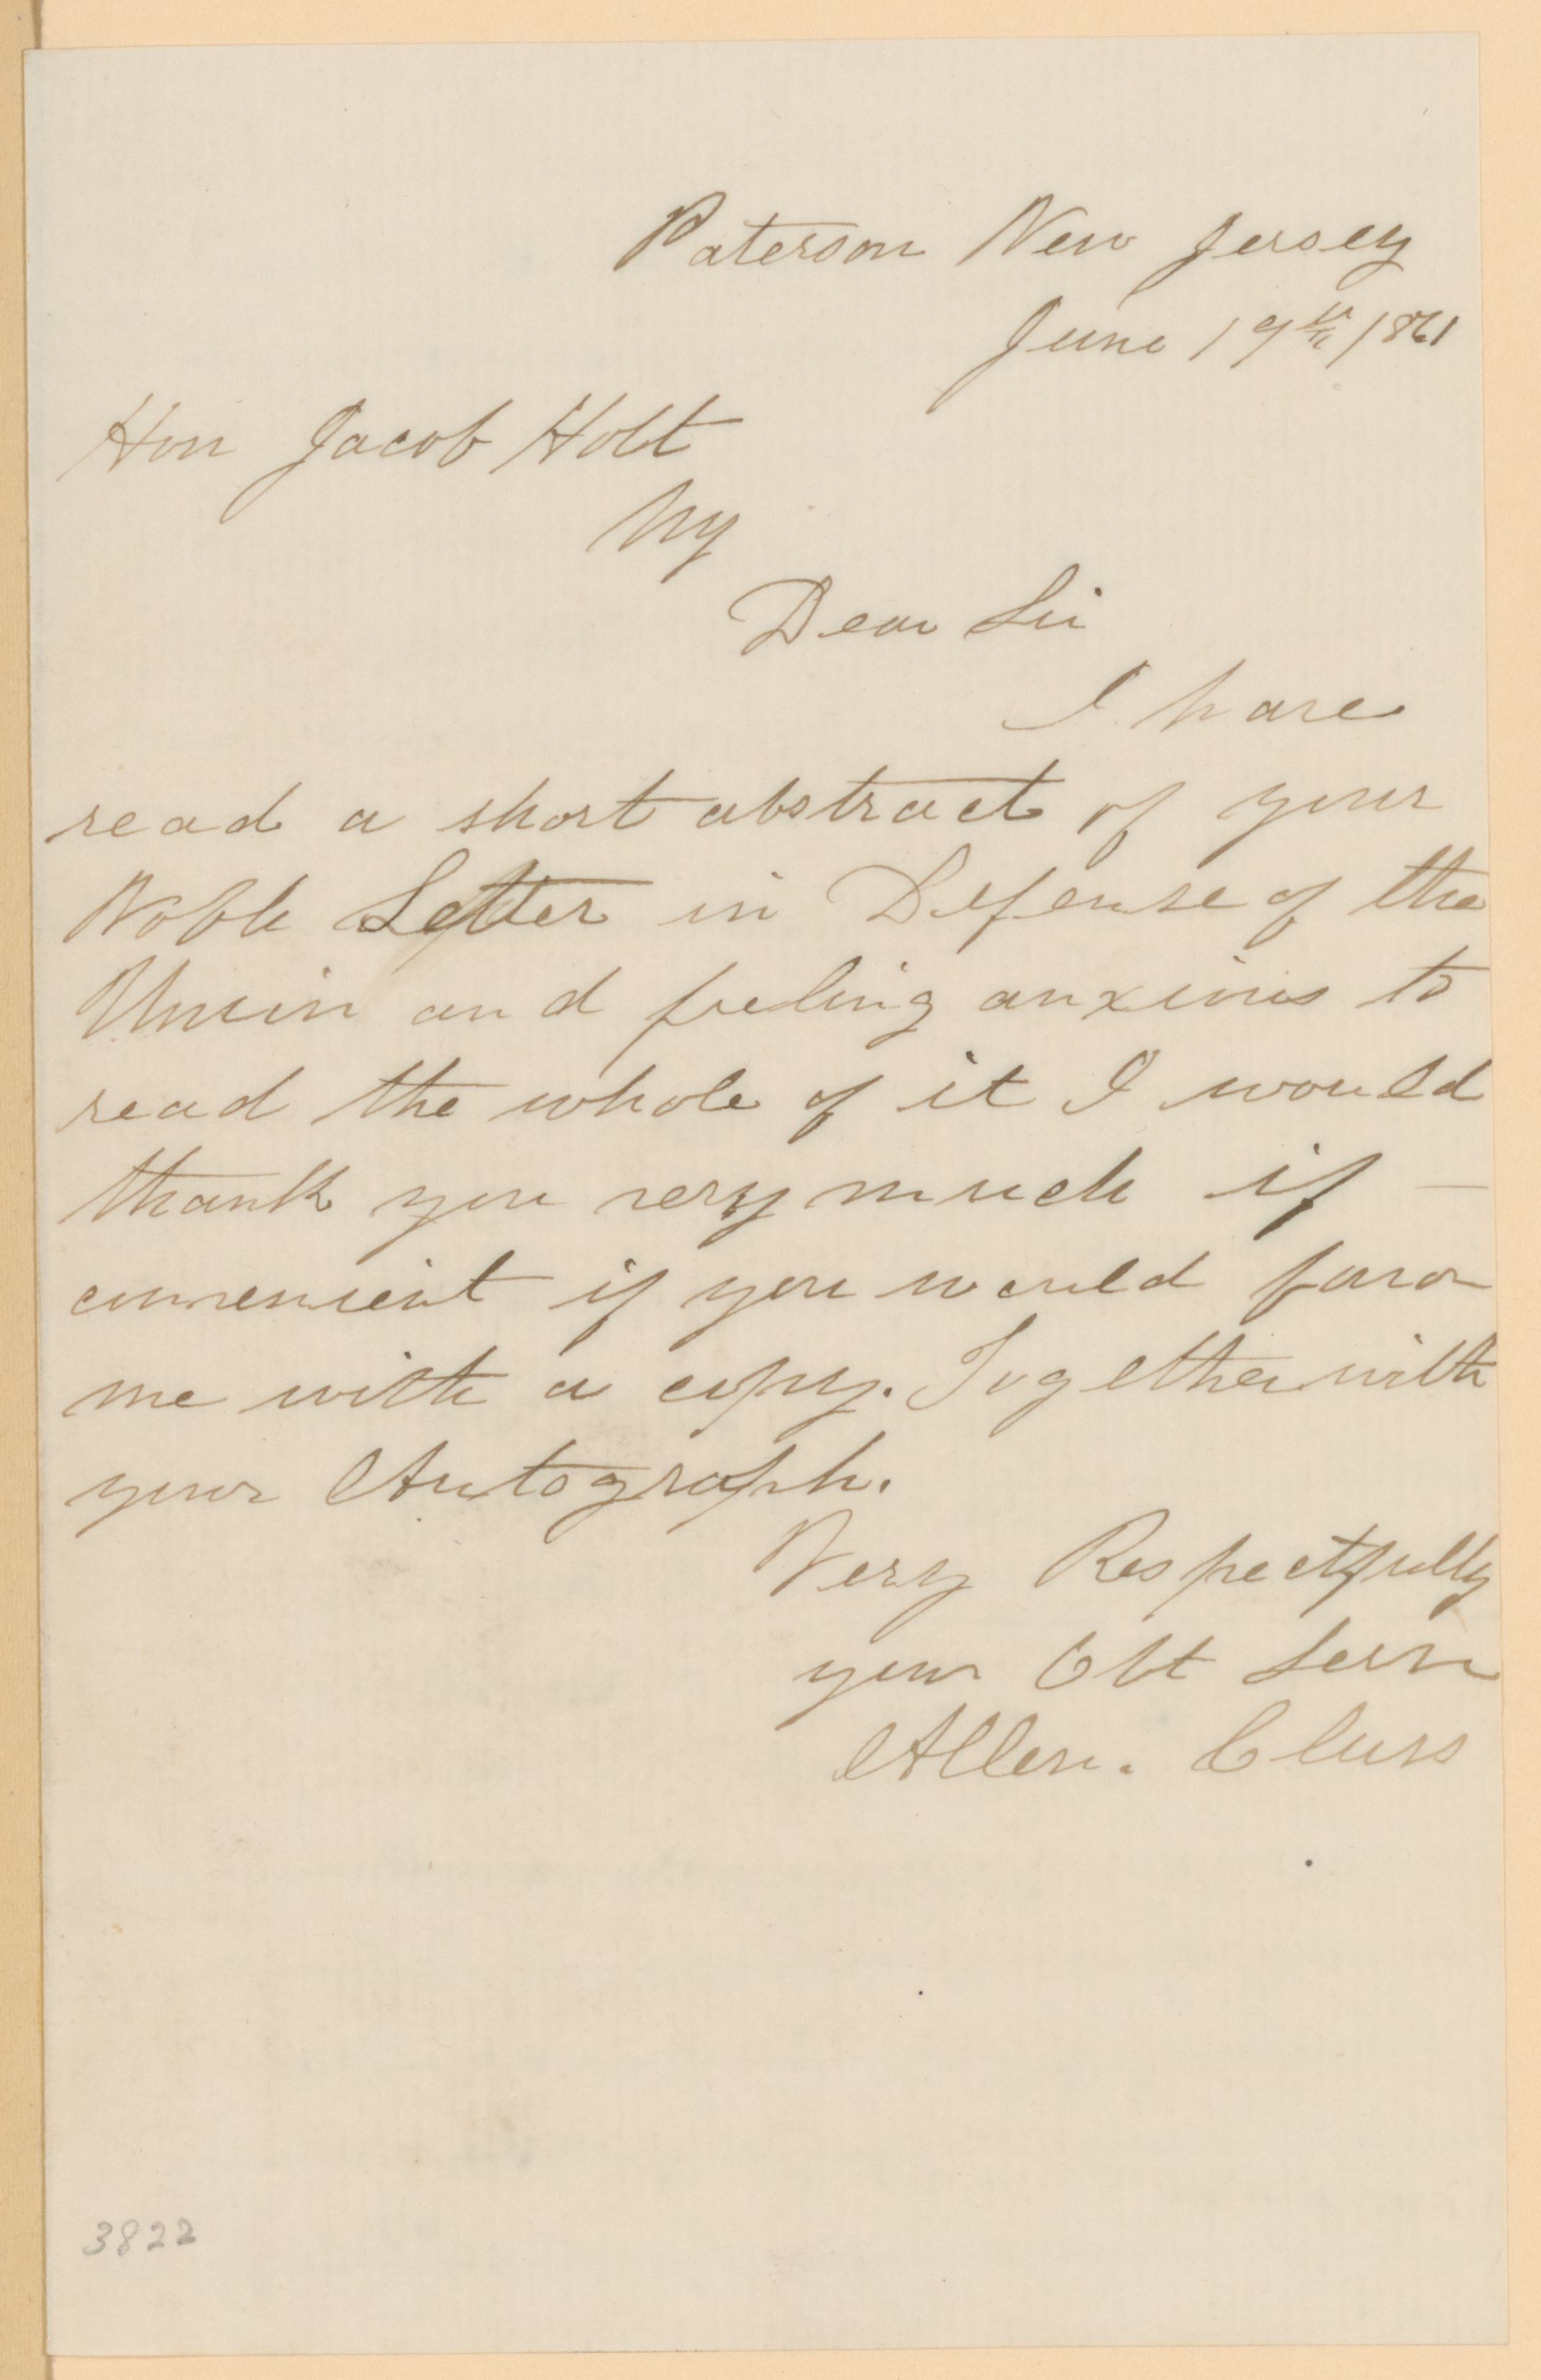 Paterson New Jersey
June 19th 1861
Hon Jacob Holt
My
Dear Sir
I have
read a short abstract of your
Noble Letter in Defense of the
Union and feeling anxious to
read the whole of it I would
thank you very much if —
convenient if you would favor
me with a copy. Together with
your Autograph.
Very Respectfully
your Obt Serv
Allen. Cluss
3822